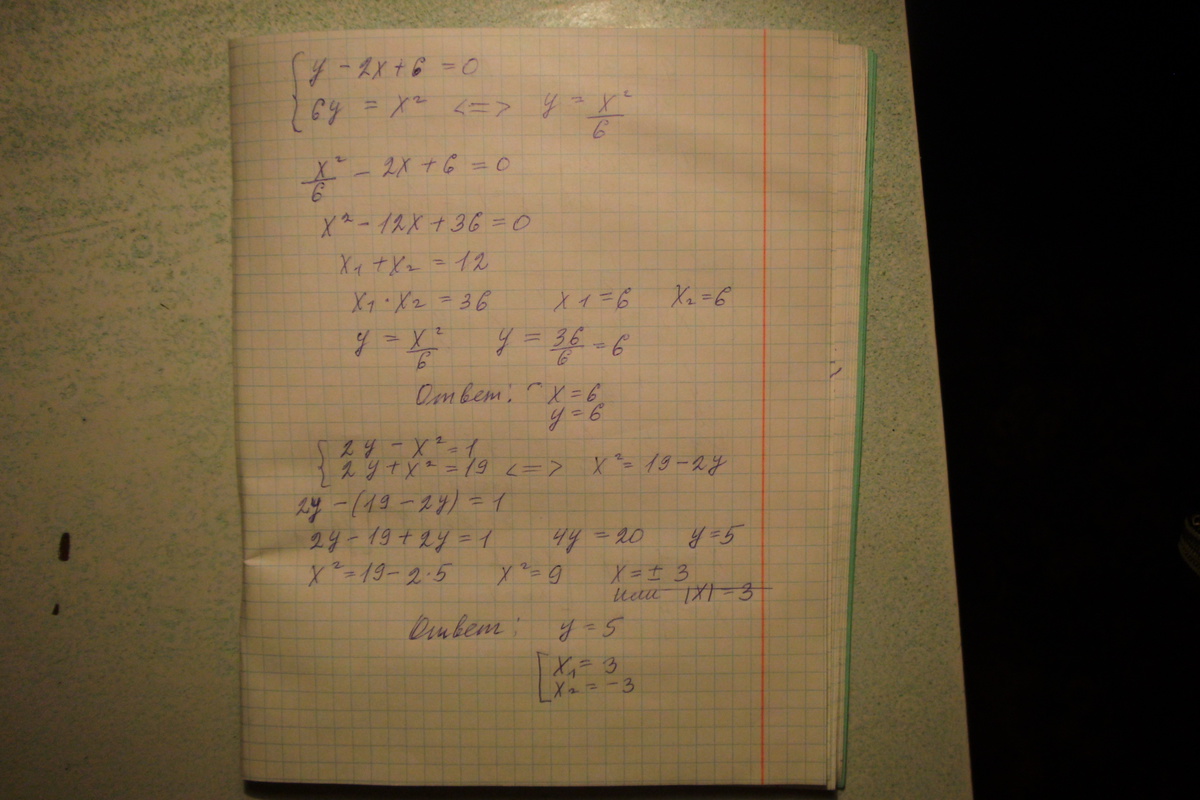 { y - 2x + 6 = 0
6y = x² <=> y = x²/6
x²/6 - 2x + 6 = 0
x² - 12x + 36 = 0
x₁ + x₂ = 12
x₁ · x₂ = 36 x₁ = 6 x₂ = 6
y = x²/6 y = 36/6 = 6
Ответ: x = 6
y = 6
{ 2y - x² = 1
2y + x² = 19 <=> x² = 19 - 2y
2y - (19 - 2y) = 1
2y - 19 + 2y = 1 4y = 20 y = 5
x² = 19 - 2·5 x² = 9 x = ± 3
или |x| = 3
Ответ: y = 5
[ x₁ = 3
x₂ = -3